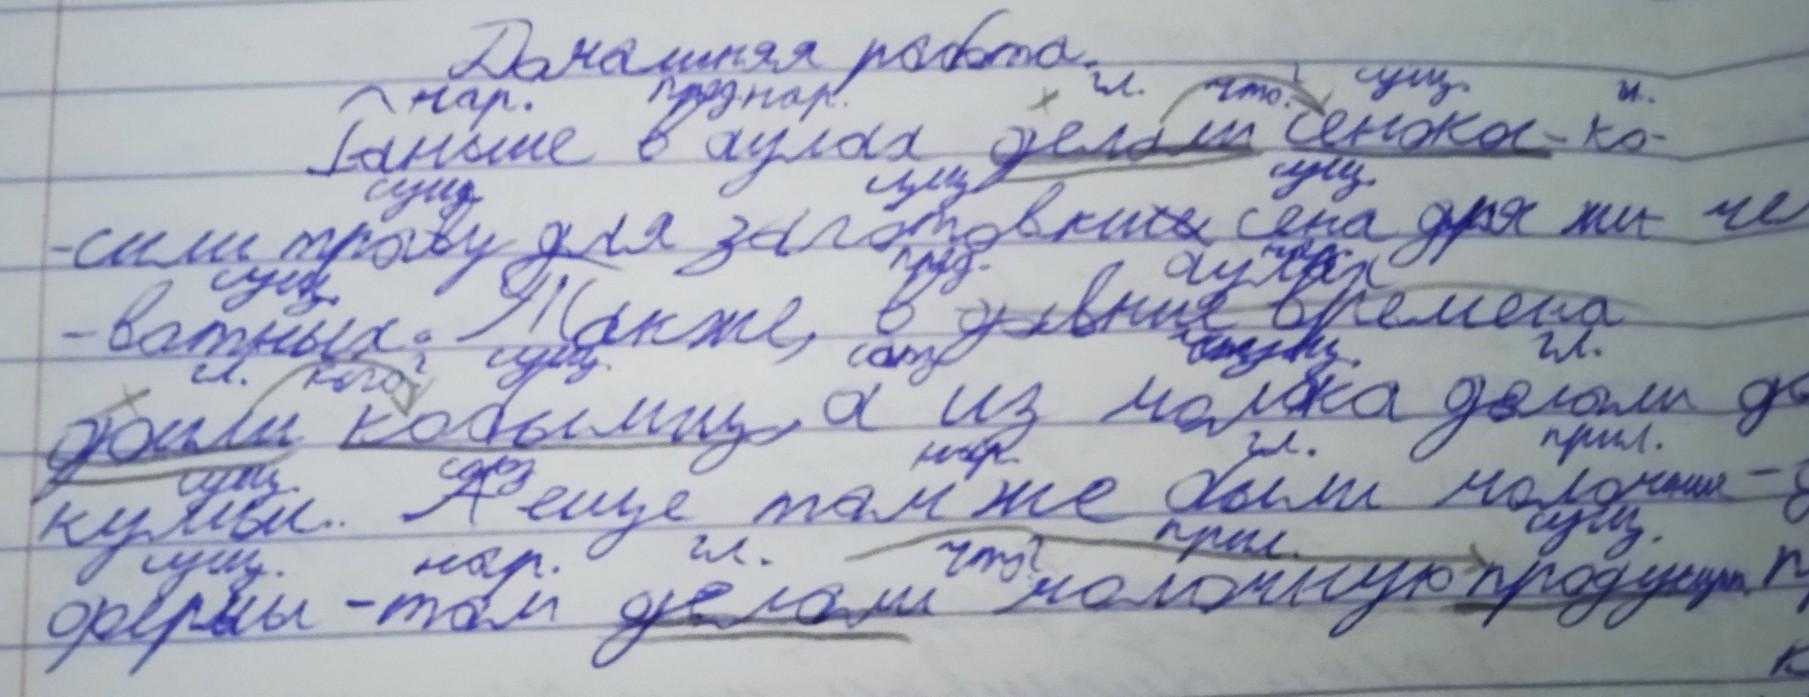 Домашняя работа.
нар. пред нар. гл. что? сущ. гл.
Раньше в аулах делали сенокос - ко-
сущ. сущ. сущ.
-сили траву для заготовки сена для жи
сущ. пред. аулах
-вотных. Также, в давние времена
гл. кого? сущ. союз сущ. гл.
доили кобылиц, а из молока делали
сущ. союз нар. гл. прил.
кумыс. А еще там же были молочные -
сущ. нар. гл. что? прил. сущ.
фермы - там делали молочную продукцию